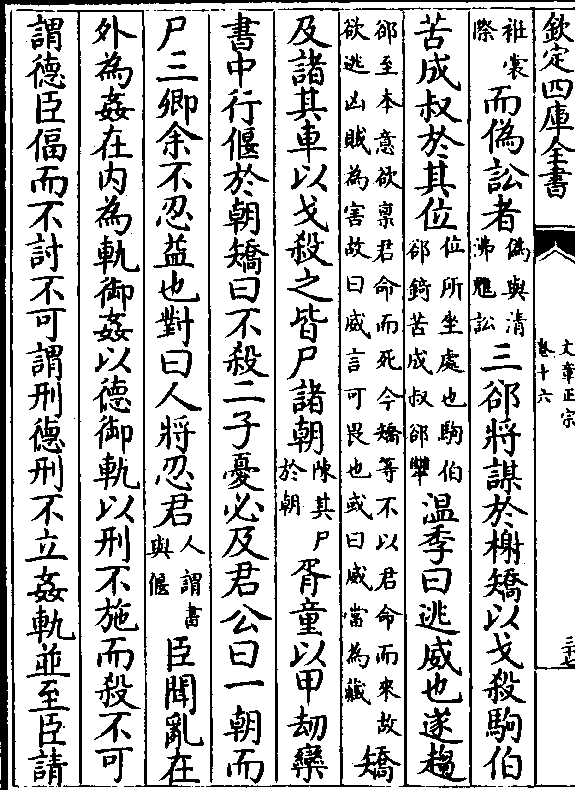 欽定四庫全書
文章正宗
卷十六
袵裳
際
而偽訟者
偽與清
沸魋訟
三郤將謀於榭矯以戈殺駒伯
苦成叔於其位
位所坐處也駒伯
郤錡苦成叔郤犫
温季曰逃威也遂趨
郤至本意欲禀君命而死今矯等不以君命而來故
欲逃凶賊為害故曰威言可畏也或曰威當為藏
矯
及諸其車以戈殺之皆尸諸朝
陳其尸
於朝
胥童以甲劫欒
書中行偃於朝矯曰不殺二子憂必及君公曰一朝而
尸三卿余不忍益也對曰人將忍君
人謂書
與偃
臣聞亂在
外為姦在内為軌御姦以德御軌以刑不施而殺不可
謂德臣偪而不討不可謂刑德刑不立姦軌並至臣請